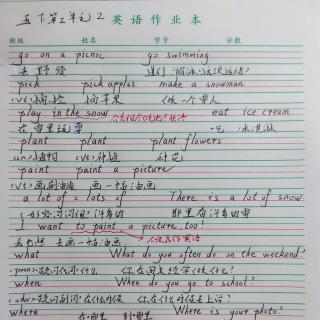 五下第2单元2 英语作业本
班级 姓名 学号 分数
go on a picnic go swimming
去野餐 进行
pick pick apples make a snowman
(vt)摘 摘苹果 做一个雪人
play in the snow eat ice cream
在雪里玩耍 吃 冰淇淋
plant plant plant flowers
(cn)植物 (vt)种植 种花
paint paint a picture
(vt)画 画一幅油画
a lot of = lots of There is a lot of snow.
许多的 那里有许多的雪
I want to paint a picture, too!
去画一幅油画
what What do you often do on the weekend?
什么 你在周末经常做什么?
when When do you go to school?
(adv)疑问副词 在什么时候 你在什么时候去上学?
where Where is your photo?
在哪里 到哪里